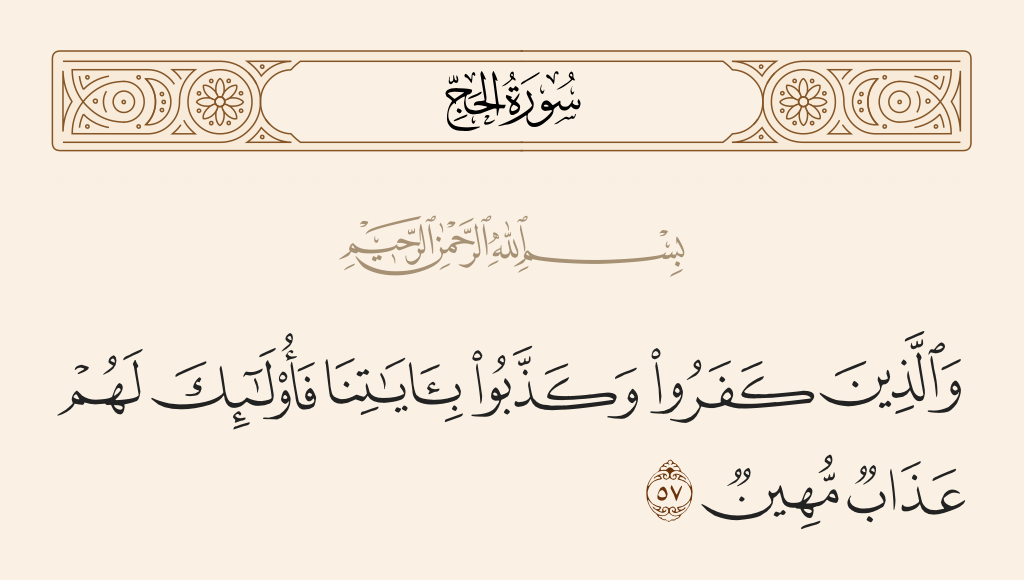 سُورَةُ الْحَجِّ
بِسْمِ ٱللَّهِ ٱلرَّحْمَٰنِ ٱلرَّحِيمِ
وَٱلَّذِينَ كَفَرُوا۟ وَكَذَّبُوا۟ بِـَٔايَـٰتِنَا فَأُو۟لَـٰٓئِكَ لَهُمْ
عَذَابٌ مُّهِينٌ ٥٧